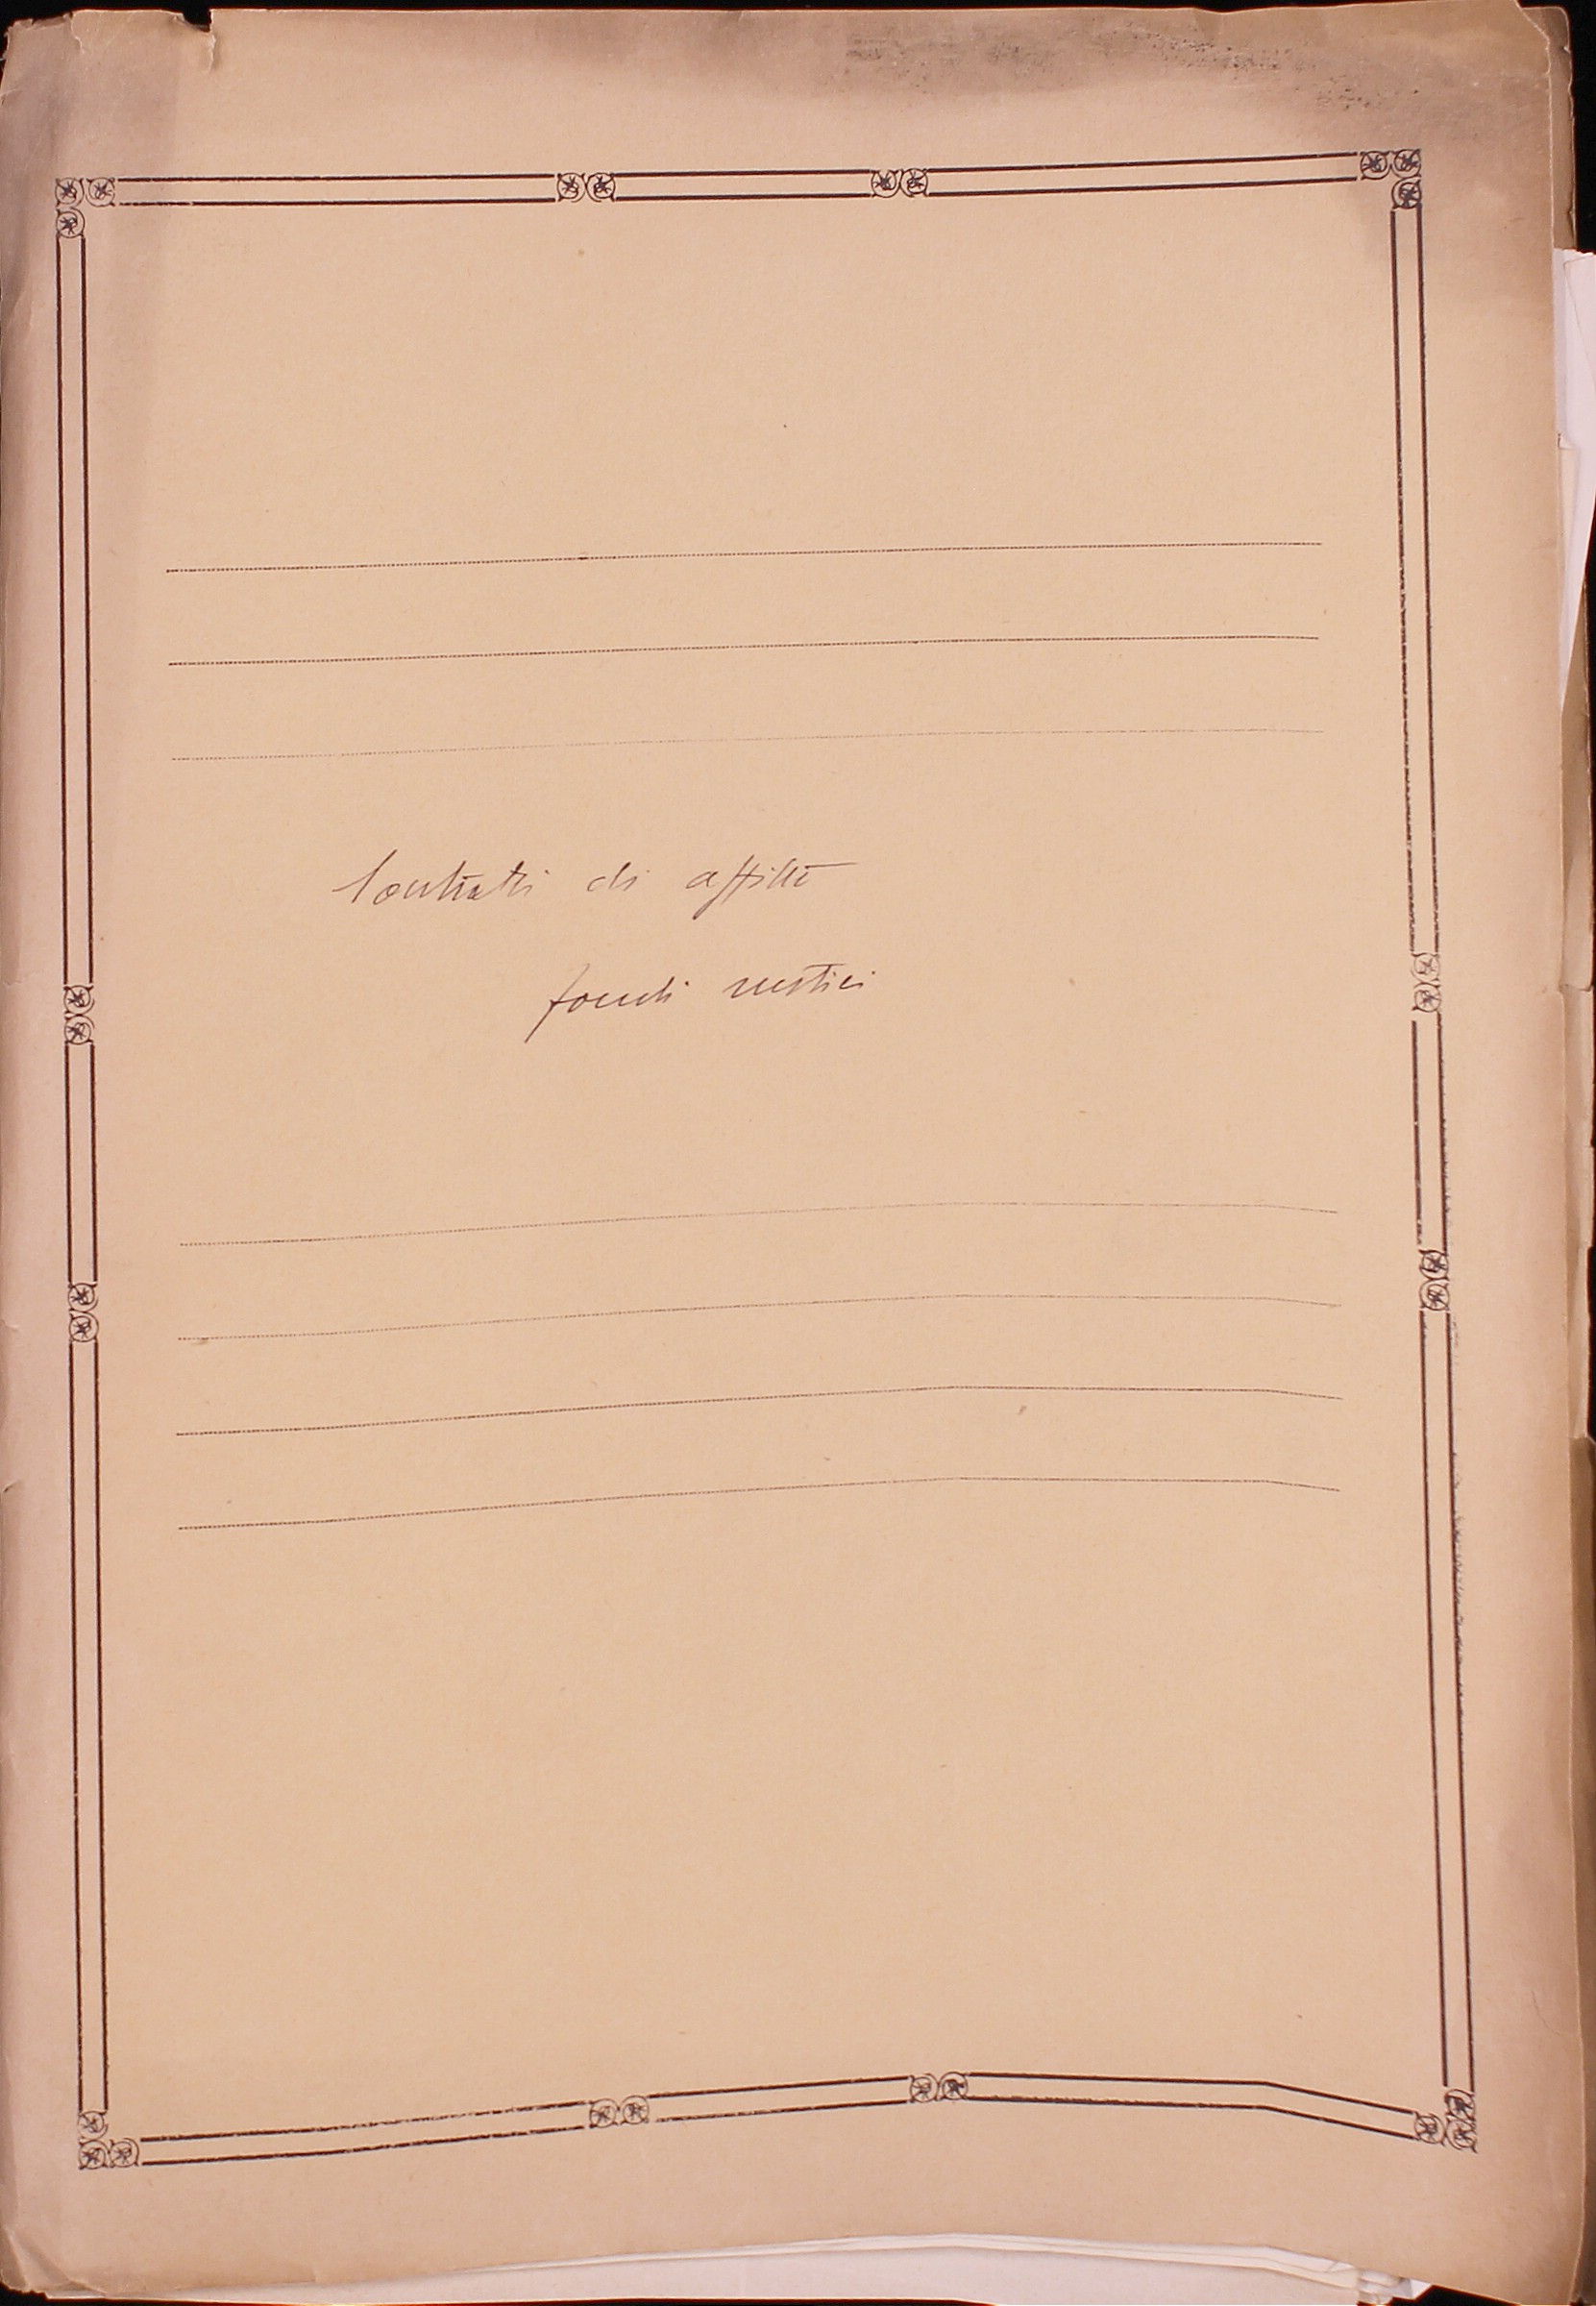 Contratti di affitto
fondi rustici